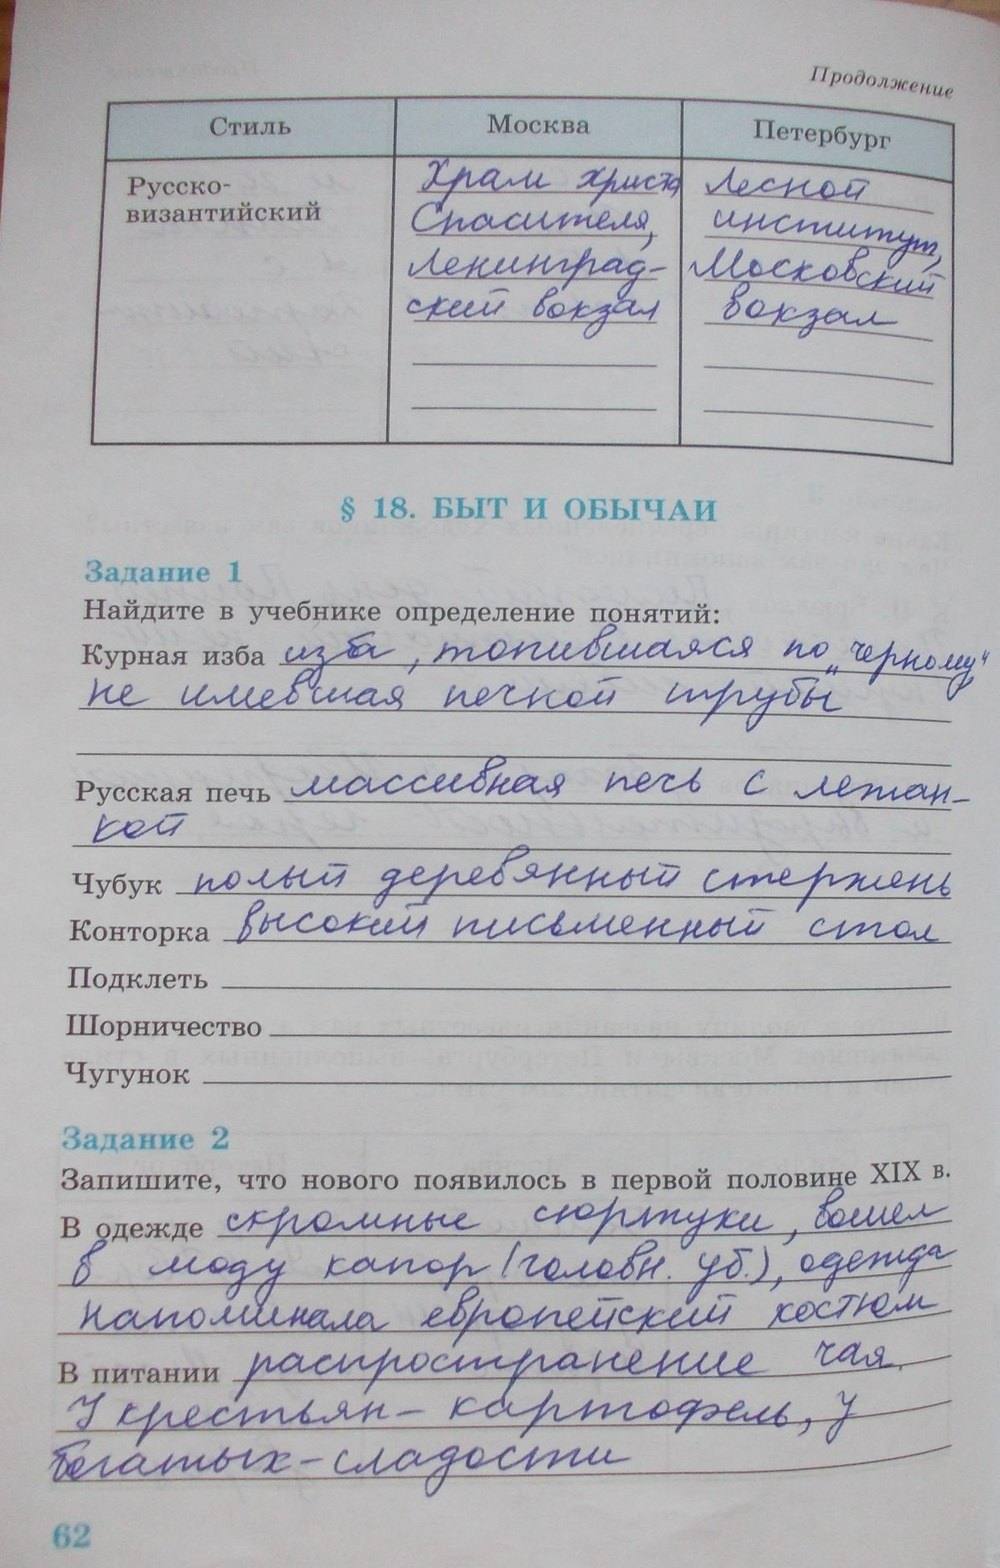 Продолжение
Стиль Москва Петербург
Русско- Храм христа Лесной
византийский Спасителя, институт,
Ленинград- Московский
ский вокзал вокзал
§ 18. БЫТ И ОБЫЧАИ
Задание 1
Найдите в учебнике определение понятий:
Курная изба изба, топившаяся по „черному"
не имевшая печной трубы
Русская печь массивная печь с лежан-
кой
Чубук полый деревянный стержень
Конторка высокий письменный стол
Подклеть
Шорничество
Чугунок
Задание 2
Запишите, что нового появилось в первой половине XIX в.
В одежде скромные сюртуки, вошел
в моду капор (головн. уб.), одежда
напоминала европейский костюм
В питании распространение чая.
У крестьян – картофель, у
богатых – сладости
62